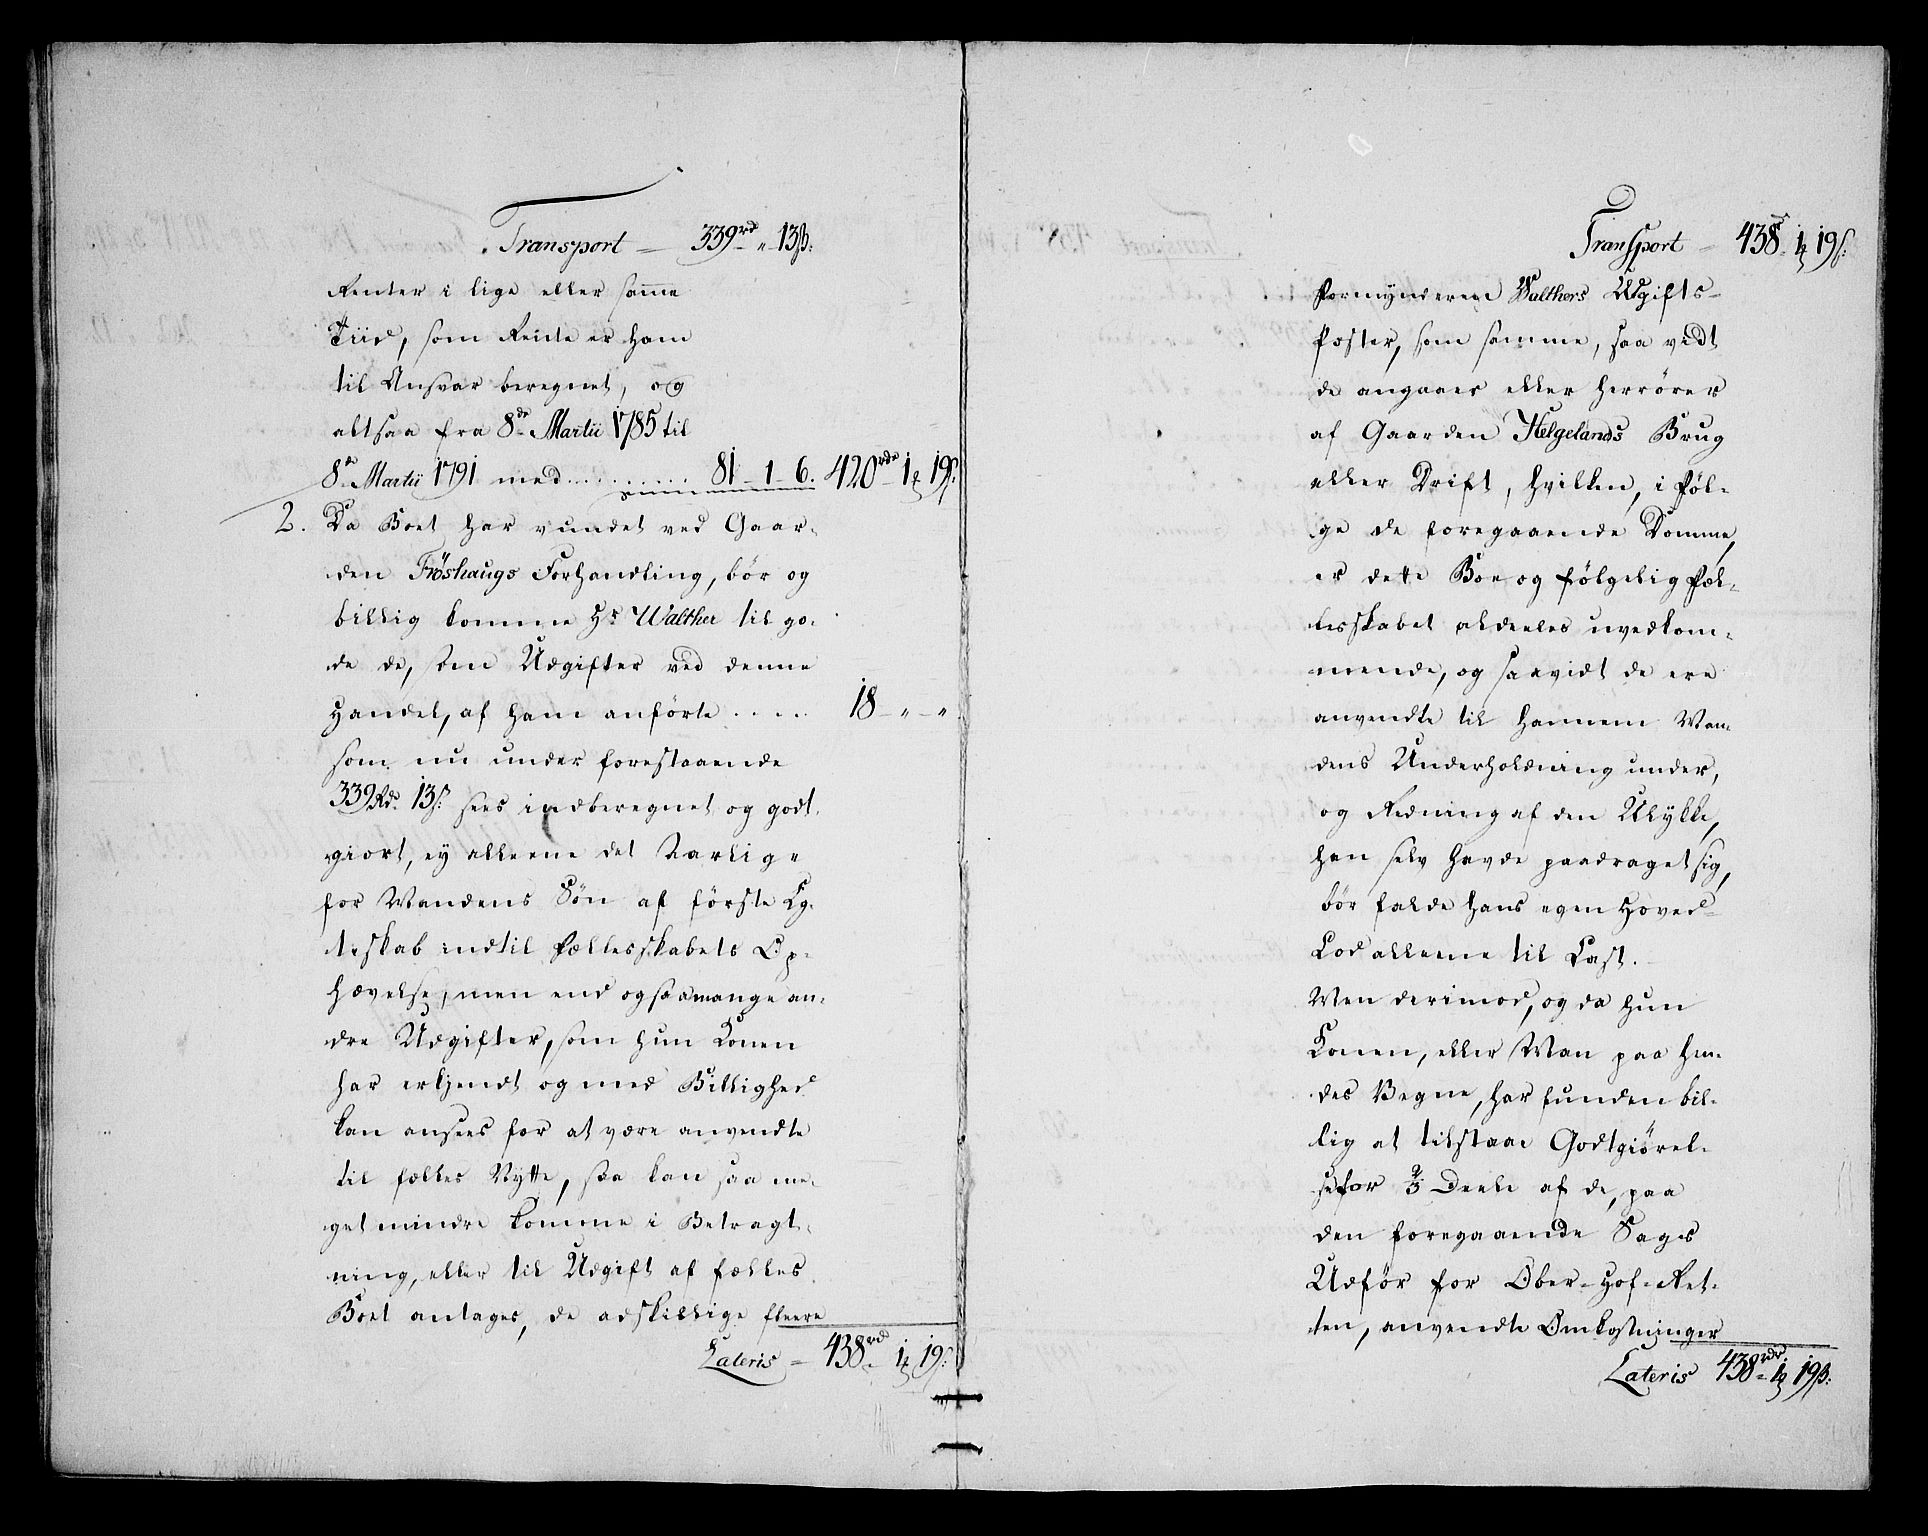 Transport — 339rd „ 13ß:
Renter i lige eller samme
Tiid, som Rente er ham
til Ansvar beregnet, og
altsaa fra 8de Martii 1785 til
8de Martii 1791 med ......... 81 - 1 - 6. 420rdr 1 ℔ 19ß:
2. Da Boet har vundet ved Gaar-
den Fröshaugs Forhandling, bör og
billig komme Hr Walther til go-
de de, som Udgifter ved denne
Handel, af ham anförte ..... 18 - „ - „
som nu under forestaaende
339 Rd. 13ß: sees indberegnet og godt-
giort, ey alleene det Aarlige
for Mandens Sön af förste Eg-
teskab indtil Fællesskabets Op-
hævelse, men end og saa mange an-
dre Udgifter, som hun Konen
har erkjendt og med Billighed
kan ansees for at være anvendte
til fælles Nytte, saa kan saa me-
get mindre komme i Betragt-
ning, eller til Udgift af fælles
Boet antages, de adskillige fleere
Lateris = 438rd 1 ℔ 19ß:
Transport = 438rd 1 ℔ 19ß:
Formynderen Walthers Udgifts-
Poster, som samme, saa vidt
de angaaer eller herrörer
af Gaarden Helgelands Brug
eller Drift, hvilken, i Föl-
ge de foregaaende Domme,
er dette Boe og fölgelig Fæl-
lesskabet aldeeles uvedkom-
mende, og saavidt de ere
anvendte til hannem Man-
dens Underholdning under,
og Redning af den Ulykke,
han selv havde paadraget sig,
bör falde hans egen Hoved-
Lod alleene til Last.
Men derimod, og da hun
Konen, eller Man paa hen-
des Vegne, har funden bil-
lig at tilstaae Godtgiörel-
se for 2/3 Deele af de, paa
den foregaaende Sags
Udför for Ober-Hof-Ret-
ten, anvendte Omkostninger
Lateris 438rdr 1 ℔ 19ß: